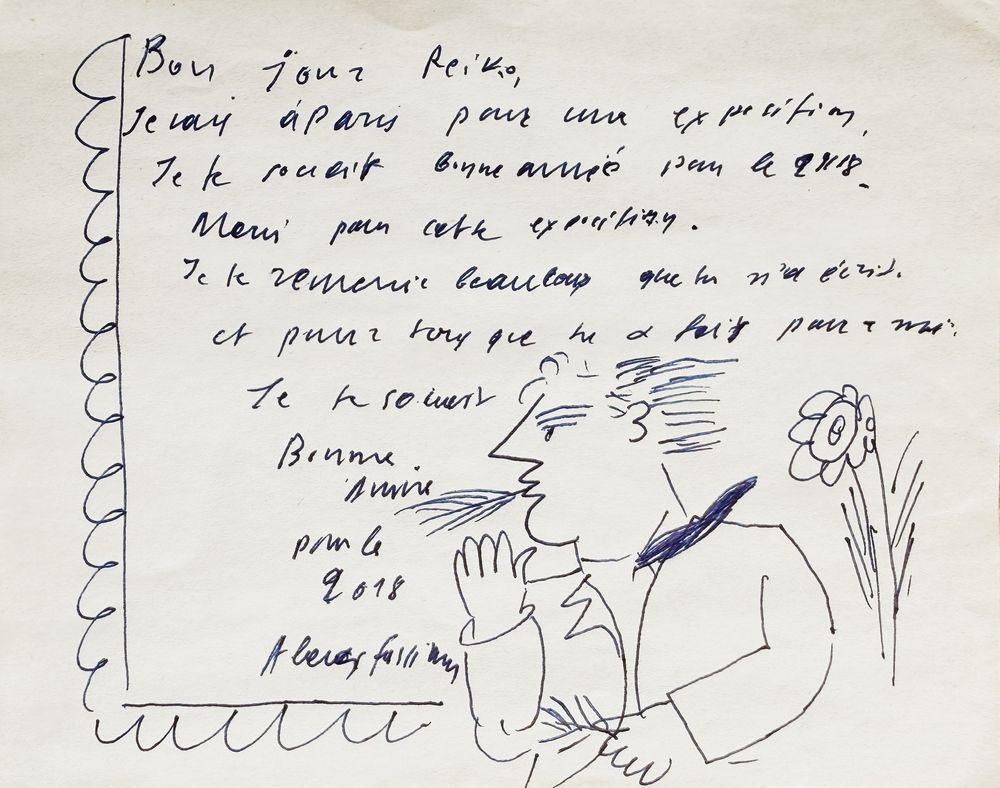 Bon jour Reiko,
Je vais á Paris pour une exposition,
Je te souait bonne année pour le 2018.
Merci pour cette exposition.
Je te remercie beaucoup que tu m'a écris.
et pour tout que tu a fait pour moi.
Je te souait
Bonne
Année
pour le
2018